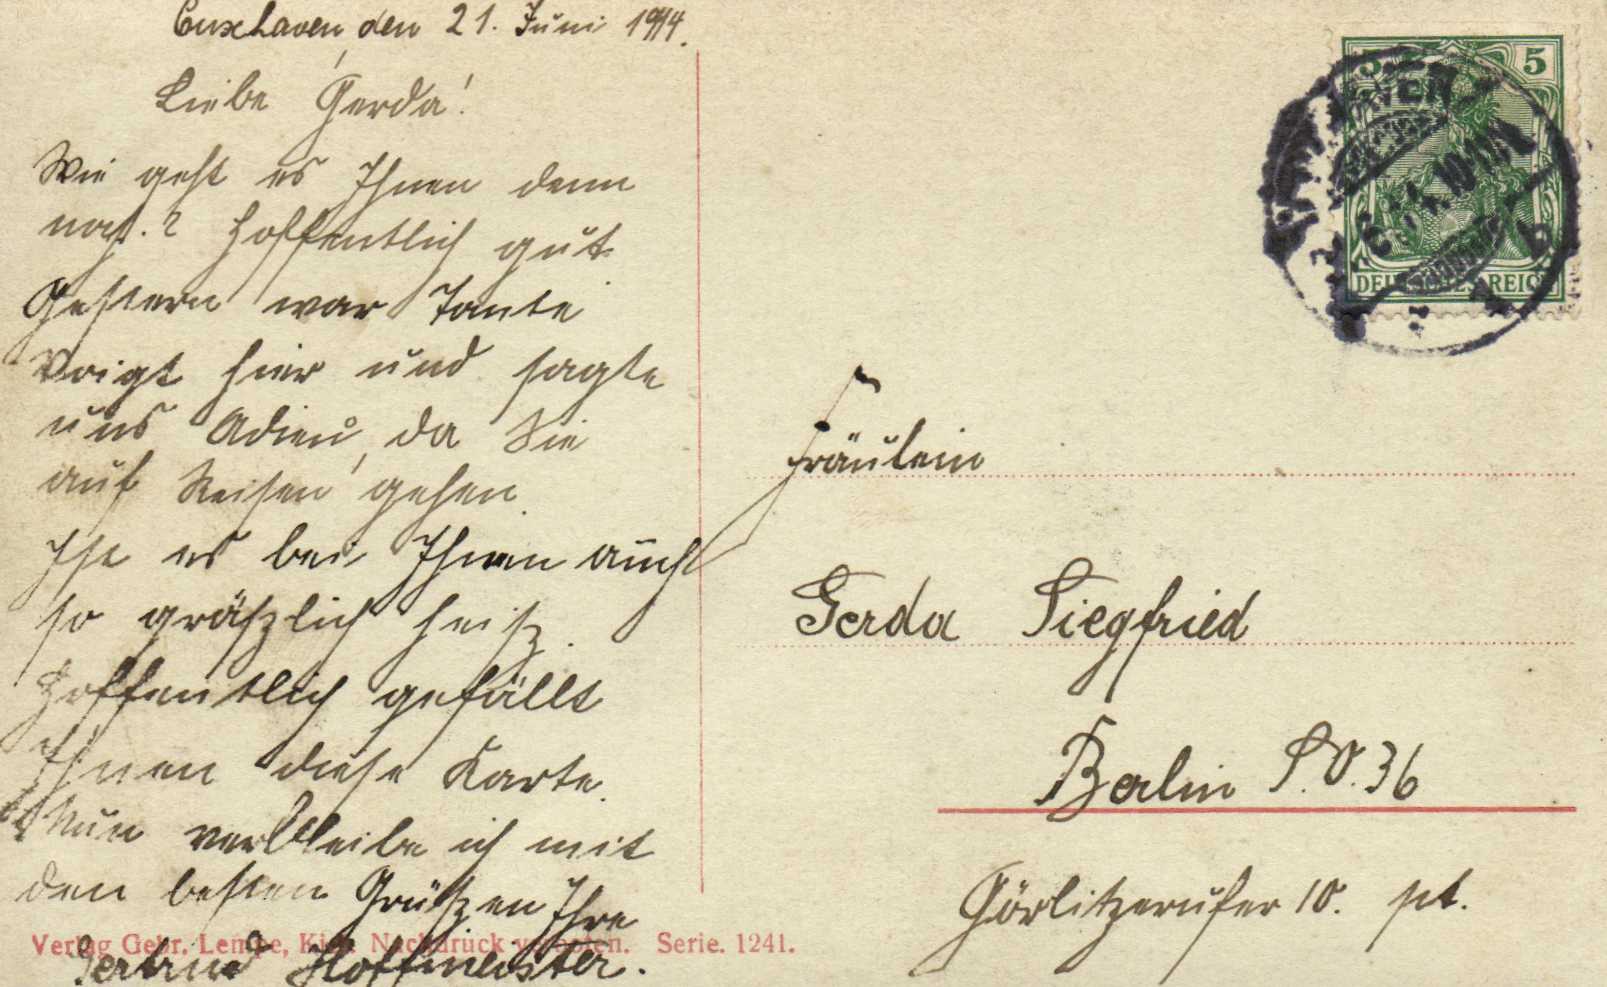 Cuxhaven, den 21. Juni 1914.
Liebe Gerda!
Wie geht es Ihnen denn
noch? Hoffentlich gut.
Gestern war Tante
Voigt hier und sagte
uns Adieu, da Sie
auf Reisen gehen.
Ist es bei Ihnen auch
so gräßlich heiß.
Hoffentlich gefällt
Ihnen diese Karte.
Nun verbleibe ich mit
den besten Grüßen Ihre
Gertrud Hoffmeister.
Verlag Gebr. Lempe, Kiel. Nachdruck verboten. Serie. 1241.
5 5
DEUTSCHES REICH
Fräulein
Gerda Siegfried
Berlin S.O. 36
Görlitzerufer 10. pt.